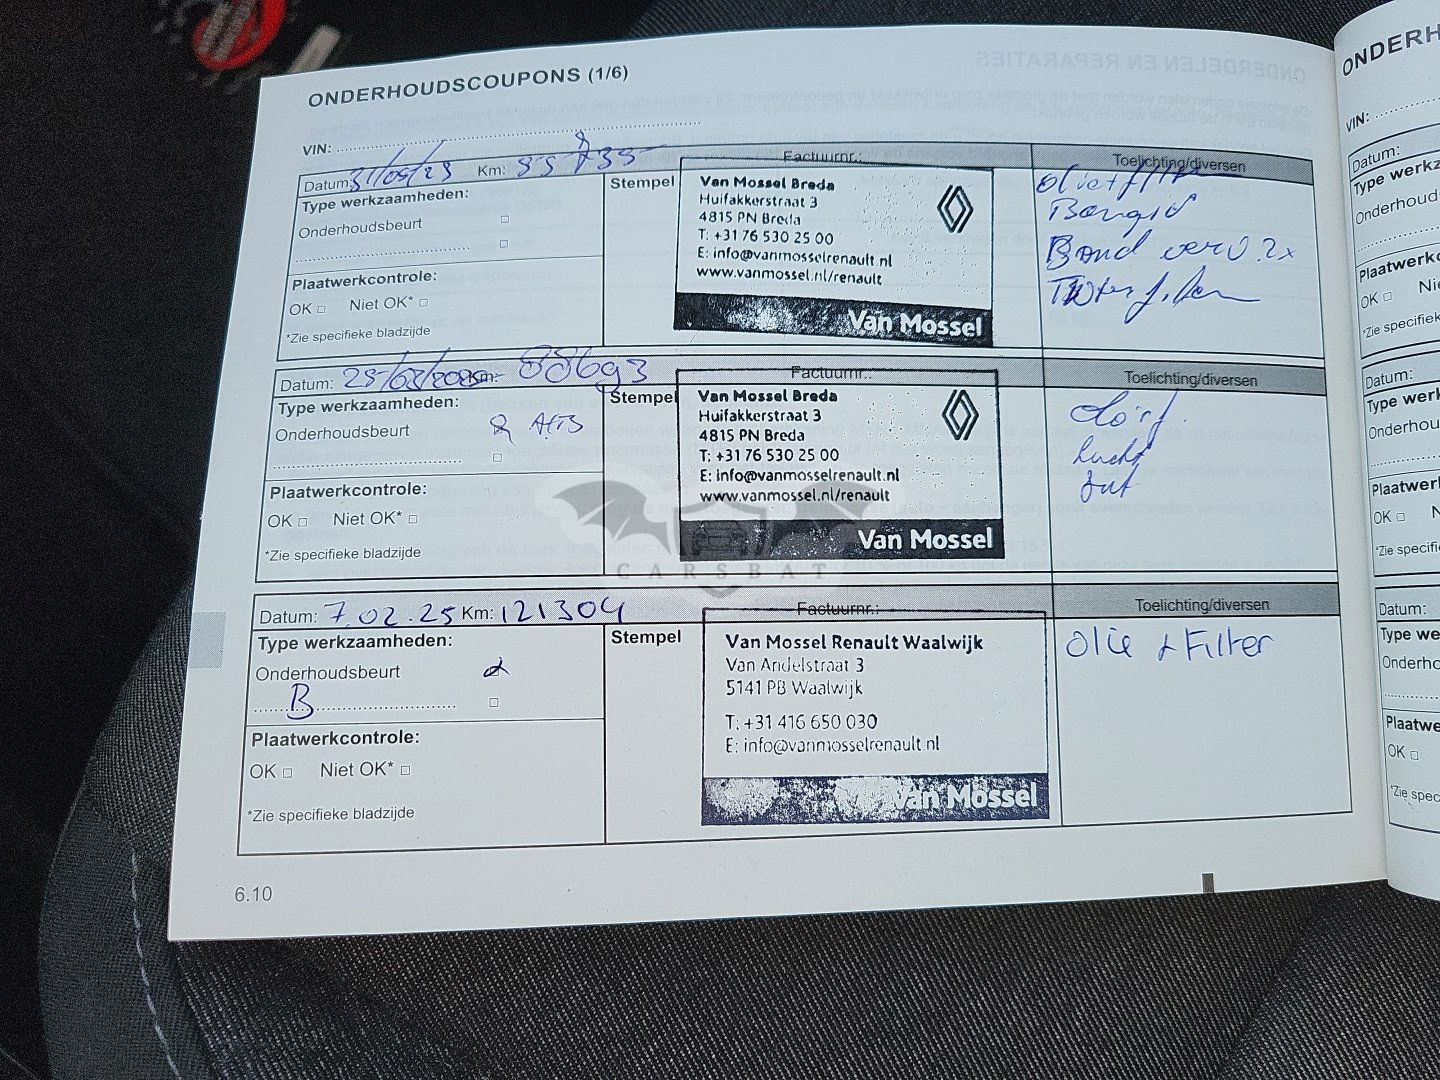 ONDERHOUDSCOUPONS (1/6)
ONDERH
VIN:
VIN:
Datum: 31/05/23 Km: Factuurnr.: Toelichting/diversen
Type werkzaamheden:
Onderhoudsbeurt
Plaatwerkcontrole:
OK Niet OK*
*Zie specifieke bladzijde
Stempel
Van Mossel Breda
Huifakkerstraat 3
4815 PN Breda
T: +31 76 530 25 00
E: info@vanmosselrenault.nl
www.vanmossel.nl/renault
Van Mossel
Olie + filter
Band verv. 2x
Datum: Km: 88693 Factuurnr.: Toelichting/diversen
Type werkzaamheden:
Onderhoudsbeurt
Plaatwerkcontrole:
OK Niet OK*
*Zie specifieke bladzijde
Stempel
Van Mossel Breda
Huifakkerstraat 3
4815 PN Breda
T: +31 76 530 25 00
E: info@vanmosselrenault.nl
www.vanmossel.nl/renault
Van Mossel
lucht
CARSBAT
Datum: 7.02.25 Km: 121304 Factuurnr.: Toelichting/diversen
Type werkzaamheden:
Onderhoudsbeurt
B
Plaatwerkcontrole:
OK Niet OK*
*Zie specifieke bladzijde
Stempel
Van Mossel Renault Waalwijk
Van Andelstraat 3
5141 PB Waalwijk
T: +31 416 650 030
E: info@vanmosselrenault.nl
Van Mossel
Olie + Filter
6.10
Datum:
Type werkz
Onderhoud
Plaatwerkc
OK Ni
*Zie specifi
Datum:
Type werk
Onderhou
Plaatwer
OK N
*Zie specifi
Datum:
Type we
Onderho
Plaatwe
OK
*Zie spec